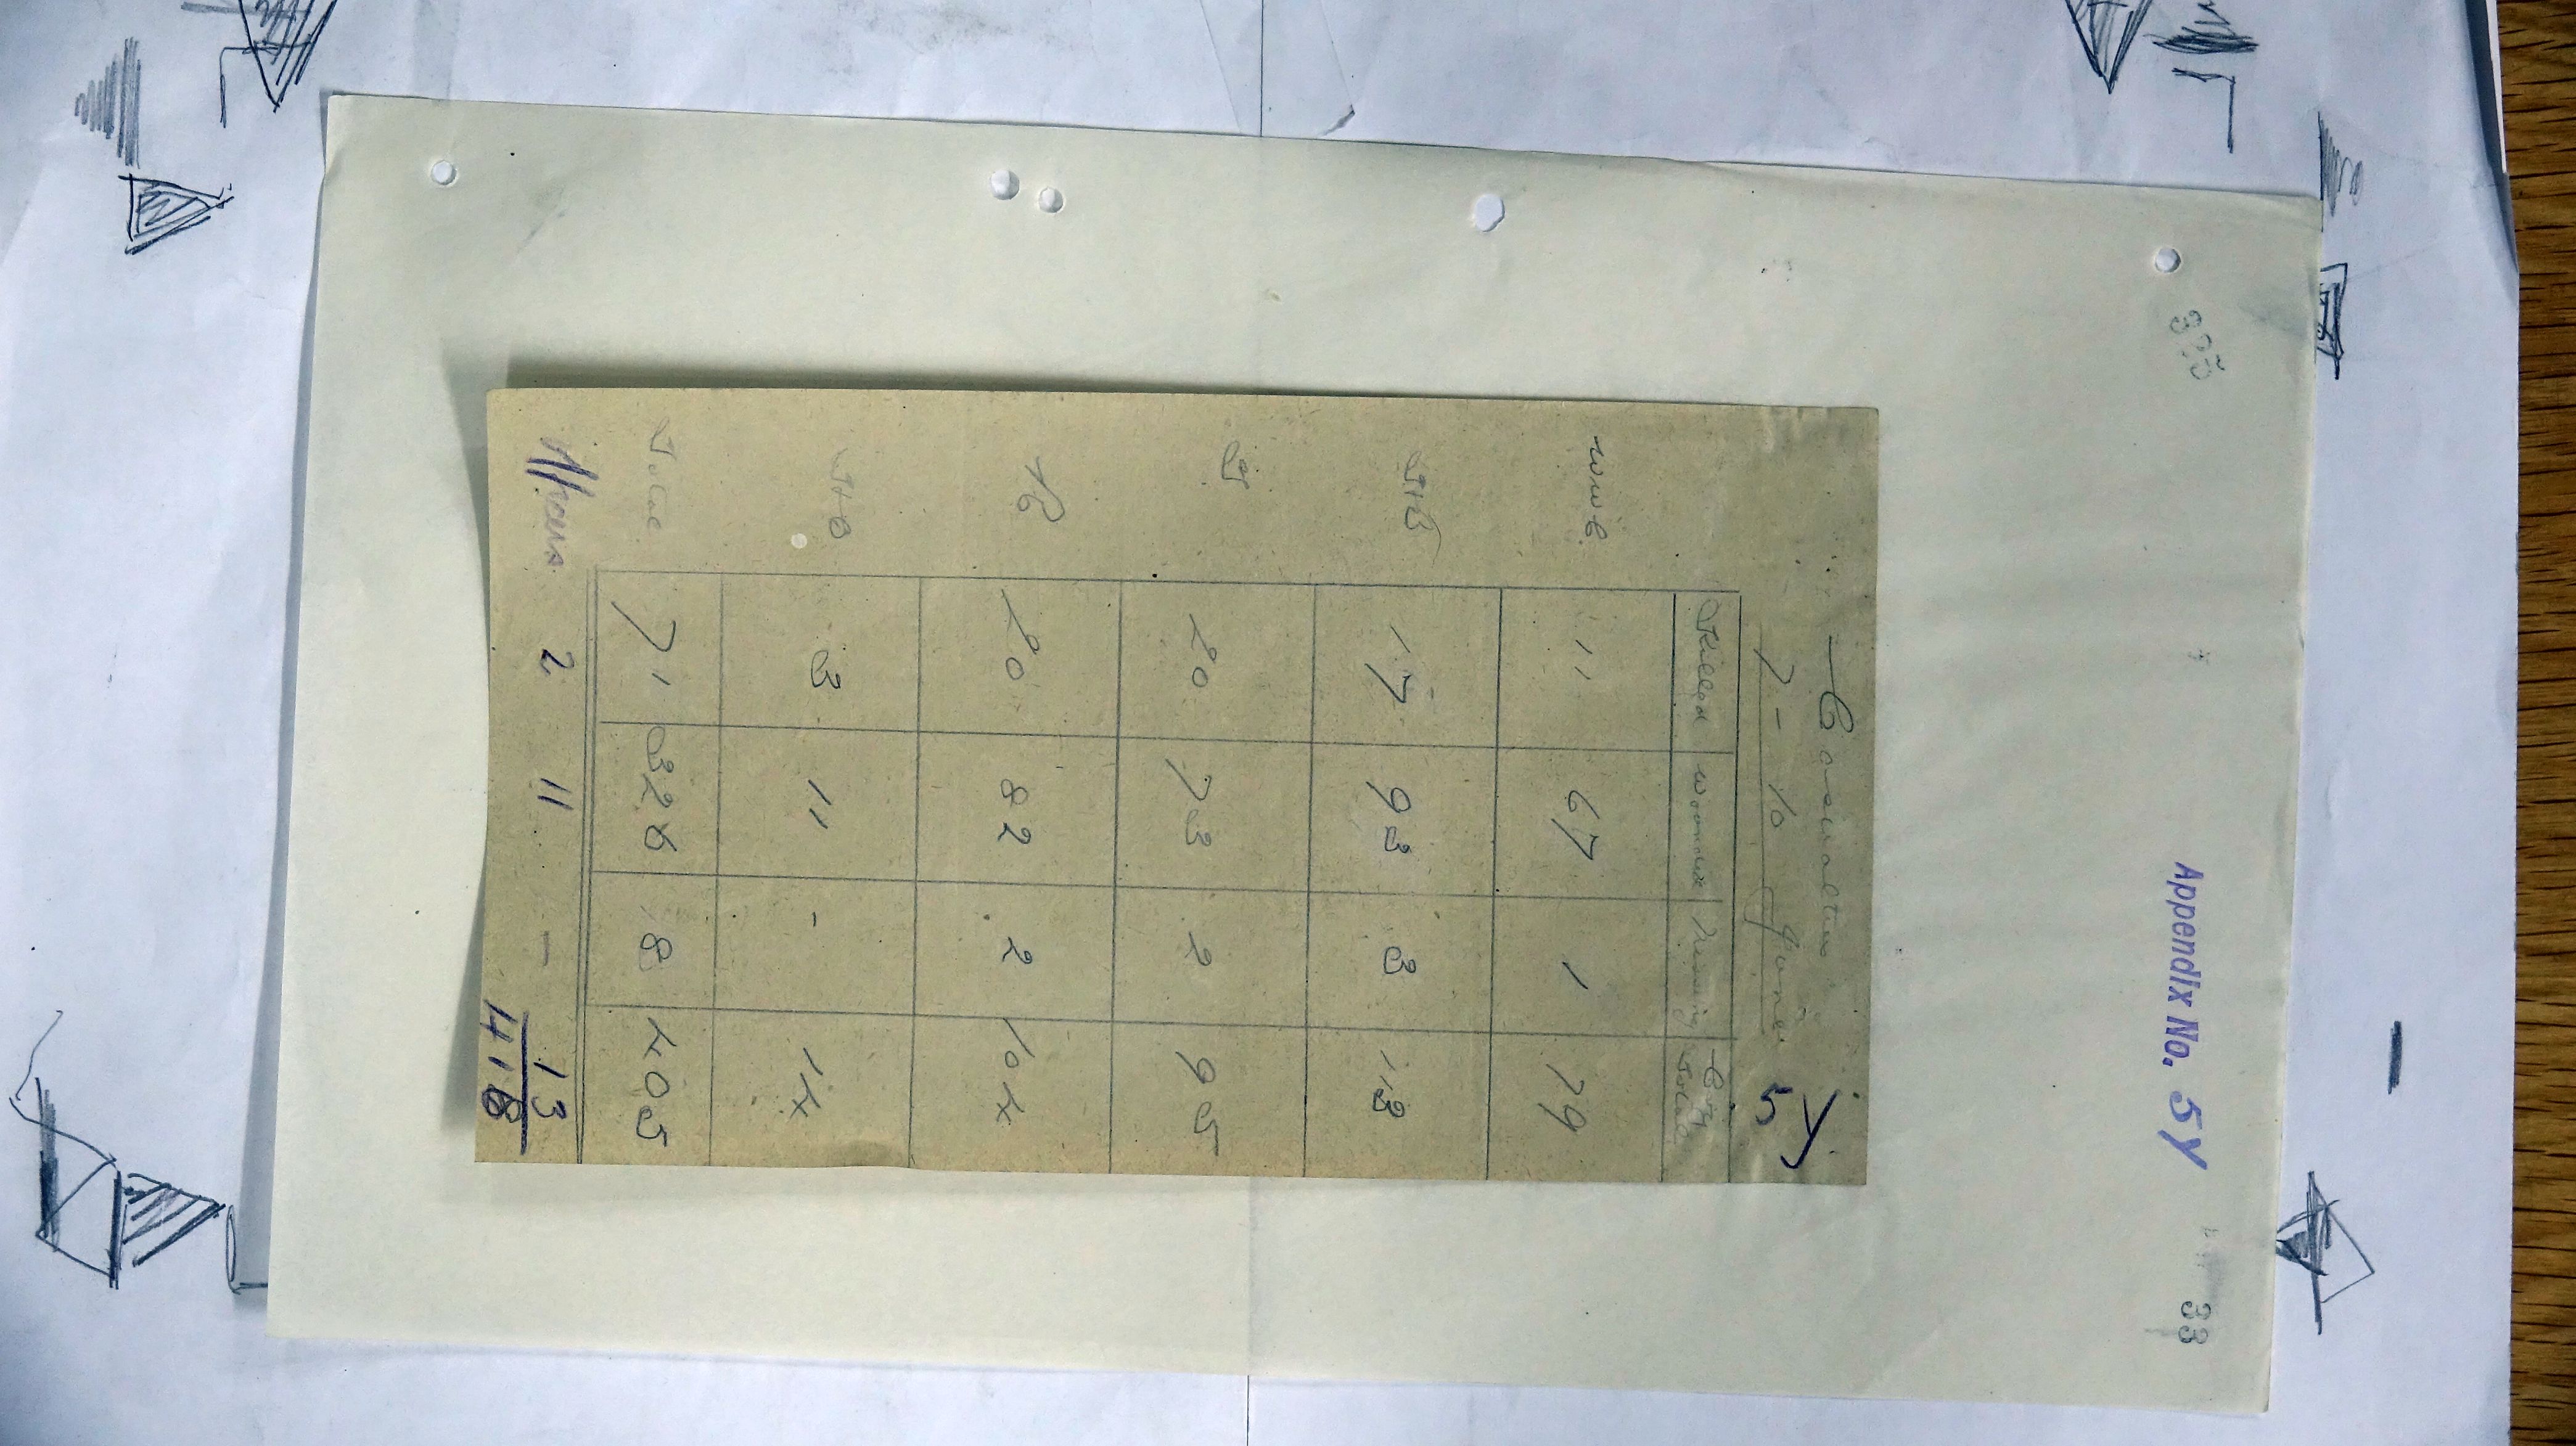 Appendix No. 5Y
33
5Y
Casualties
7 - 10 June
Killed Wounded Missing Coy Total
11 67 1 79
17 93 3 113
20 73 2 95
20 82 2 104
3 11 - 14
Total 71 326 8 405
Officers 2 11 - 13
418